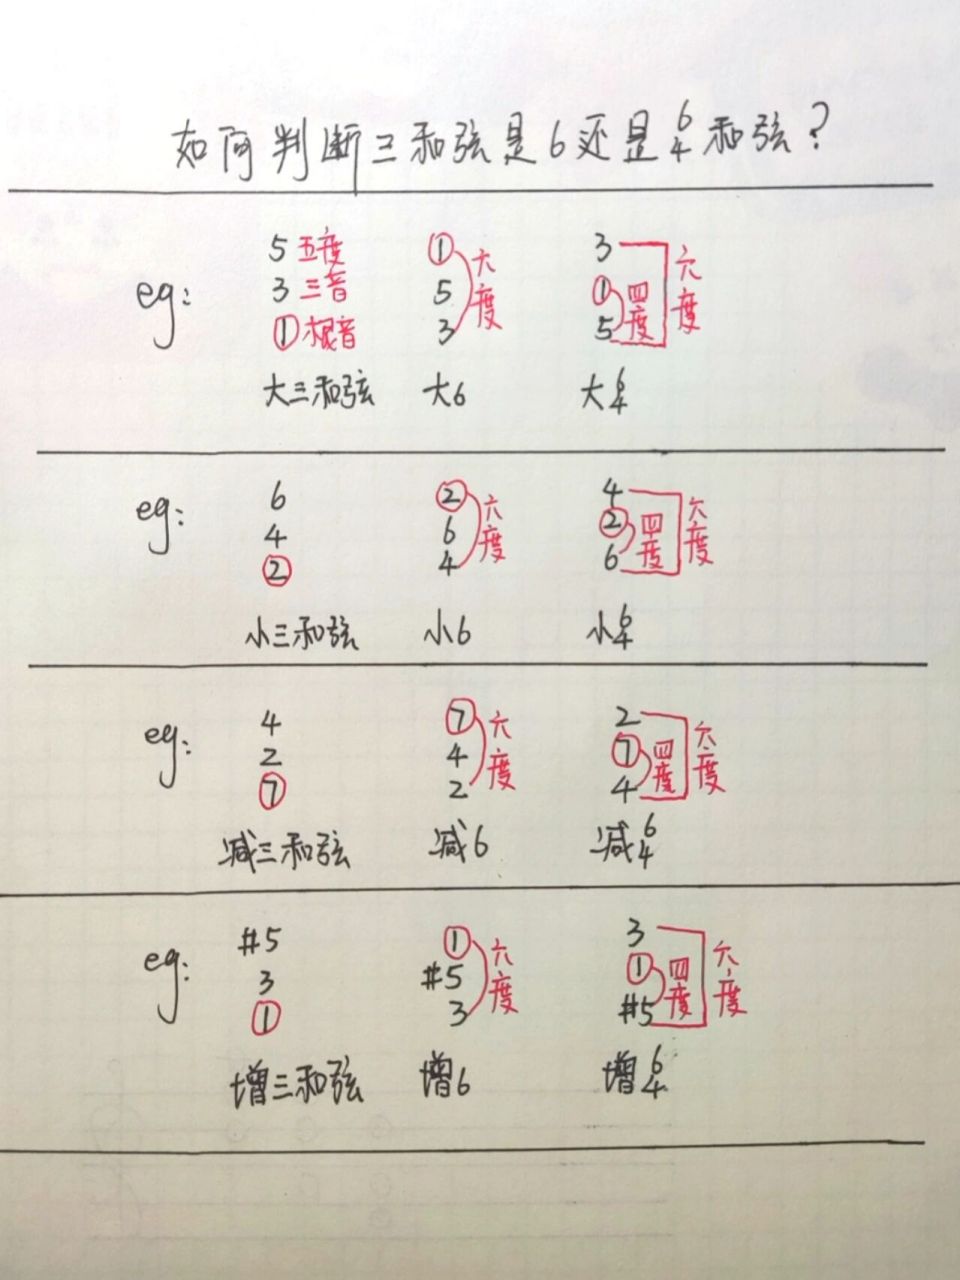 如何判断三和弦是6还是6/4和弦?
eg:
5 五度 ① 3
3 三音 5 ①
①根音 3 5
六度 四度 六度
大三和弦 大6 大6/4
eg:
6 ② 4
4 6 ②
② 4 6
六度 四度 六度
小三和弦 小6 小6/4
eg:
4 ⑦ 2
2 4 ⑦
⑦ 2 4
六度 四度 六度
减三和弦 减6 减6/4
eg:
#5 ① 3
3 #5 ①
① 3 #5
六度 四度 六度
增三和弦 增6 增6/4